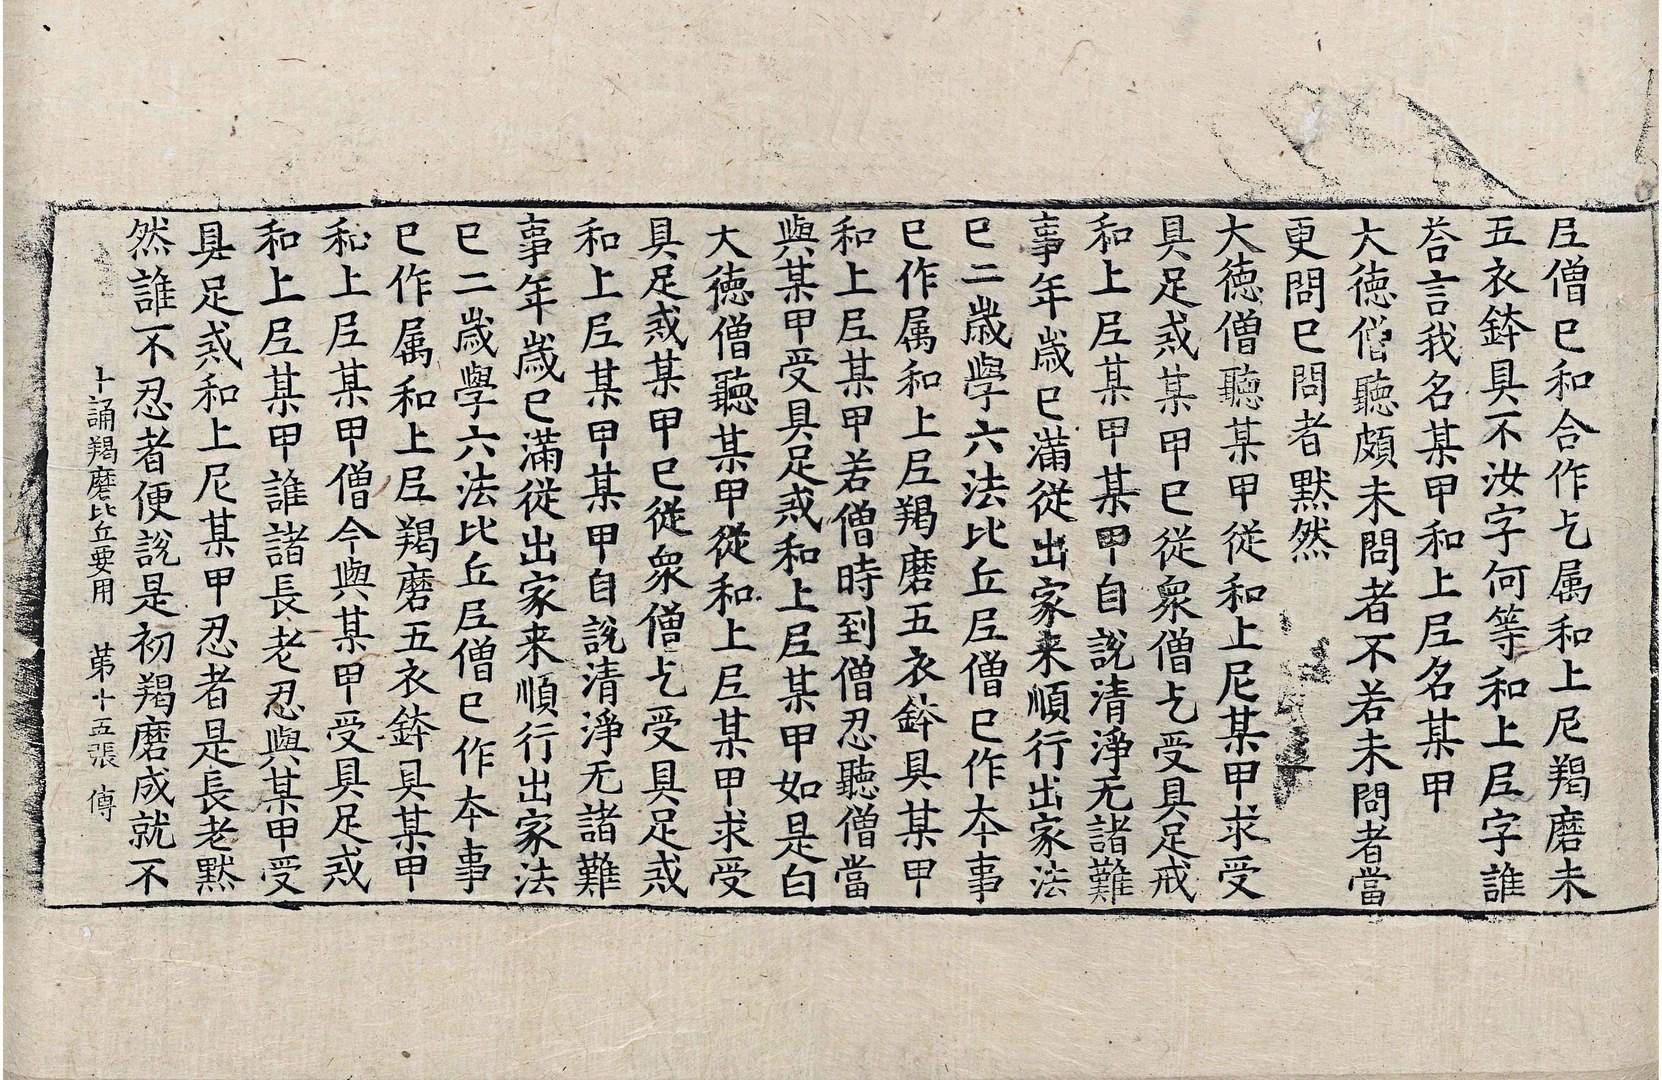 尼僧已和合作乞属和上尼羯磨未
五衣鉢具不汝字何等和上尼字誰
荅言我名某甲和上尼名某甲
大徳僧聽頗未問者不若未問者當
更問已問者黙然
大徳僧聽某甲従和上尼某甲求受
具足戒某甲已從衆僧乞受具足戒
和上尼某甲某甲自說清淨无諸難
事年歲已滿從出家来順行出家法
已二歲學六法比丘尼僧已作夲事
已作属和上尼羯磨五衣鉢具某甲
和上尼某甲若僧時到僧忍聽僧當
與某甲受具足戒和上尼某甲如是白
大徳僧聽某甲從和上尼某甲求受
具足戒某甲已從衆僧乞受具足戒
和上尼某甲某甲自說清淨无諸難
事年歲已滿從出家来順行出家法
已二歲學六法比丘尼僧已作夲事
已作属和上尼羯磨五衣鉢具某甲
和上尼某甲僧今與某甲受具足戒
和上尼某甲誰諸長老忍與某甲受
具足戒和上尼某甲忍者是長老黙
然誰不忍者便說是初羯磨成就不
十誦羯磨比丘要用 苐十五張 傳